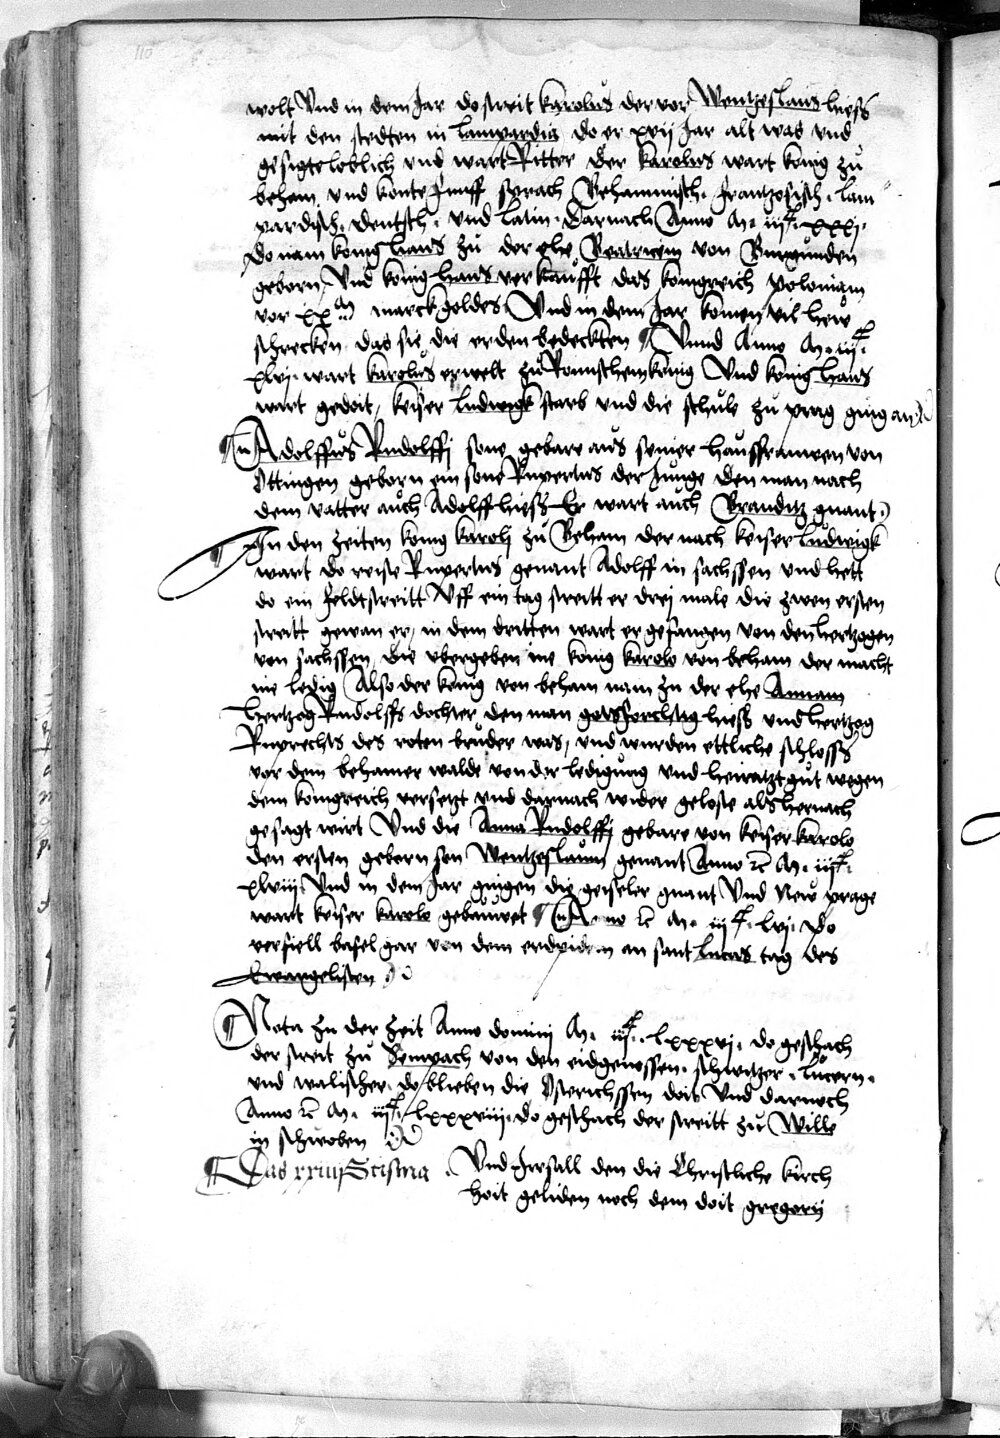 110
wolt Und in dem Jar do streit karolus der vor Wentzeslaus hiess
mit den stedten in lampardia do er xvij Jar alt was und
gesigte loblich und wart Ritter Der karolus wart konig zu
beham und konte funff sprach Behamisch. frantzosisch. lam
pardisch. deutsch. und latin. Darnach Anno M. iijc. xxxj.
Do nam konig hans zu der ehe Beatricem von Burgunden
geborn, Und konig hans verkaufft das konigreich poloniam
vor xxm marck goldes Und in dem Jar komen vil hew
schrecken das sie die erden bedeckten Unnd Anno M. iijc.
xlvj. wart karolus erwelt zu Romischem konig Und konig hans
wart gedoit, keiser ludwigk starb und die schule zu prag ging an
Adolffus Rudolffj sone gebare aus seiner haussfrauwen von
Ottingen geborn ein sone Rupertus der Junge den man nach
dem vatter auch Adolff hiess Er wart auch Branditz gnant.
In den zeiten konig karolj zu Beham der nach keiser ludwigk
wart do reise Rupertus genant Adolff in sachssen und hett
do ein feldtstreitt Uff ein tag streitt er drej male die zwen ersten
streitt gewan er, in dem dritten wart er gefangen von den hertzogen
von sachssen, die ubergeben ine konig karolo von beham der macht
ine ledig Also der konig von beham nam zu der ehe Annam
hertzog Rudolffs dochter den man gotsforchtig hiess und hertzog
Ruprechts des roten bruder was, und wurden ettliche schloss
vor dem behamer walde von der ledigung und heiratzgut wegen
dem konigreich versetzt und darnach wider geloste als hernach
gesagt wirt Und die Anna Rudolffj gebare von keiser karolo
den ersten gebornsen Wentzeslaum genant Anno etc M. iijc.
xlviij. Und in dem Jar gingen die geiseler gnant Und New prage
wart keiser karolo gebauwet Anno etc M. iijc. lvj. Do
verfiell basel gar von dem erdpidem an sant lucas tag des
Ewangelisten
Nota zu der zeit Anno domini M. iijc. lxxxvj. do geschach
der streit zu Sempach von den eidgenossen. schwitzer. lucern.
und walischer. do blieben die Osterichssen doit Und darnoch
Anno etc M. iijc. lxxxviij. do geschach der streitt zu Wille
in schwoben
Das xxiij Scisma. Und Irrsall den die Christliche kirch
hoit geliden noch dem doit gregorij